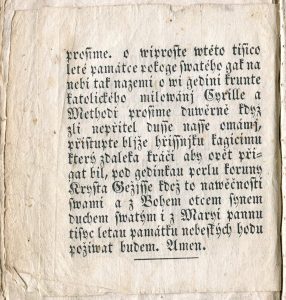 prosime. o wiproste wtéto tisíco
leté památce rokoge swatého gak na
nebi tak nazemi o wi gedini krunte
katolického milewánj Cyrille a
Methodi prosime duwěrně když
zli nepřitel dusse nasse omámj,
přistupte bljže hřissnjku kagicimu
který zdaleka kráči aby opět při-
gat bil, pod gedinkau perlu koruny
Krysta Gezisse kdež to nawěčnosti
swami a z Bohem otcem synem
duchem swatým i z Maryi pannu
tisyc letau památku nebeských hodu
požiwat budem. Amen.